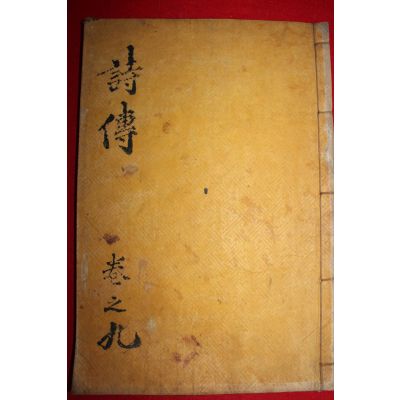 詩傳
卷之九